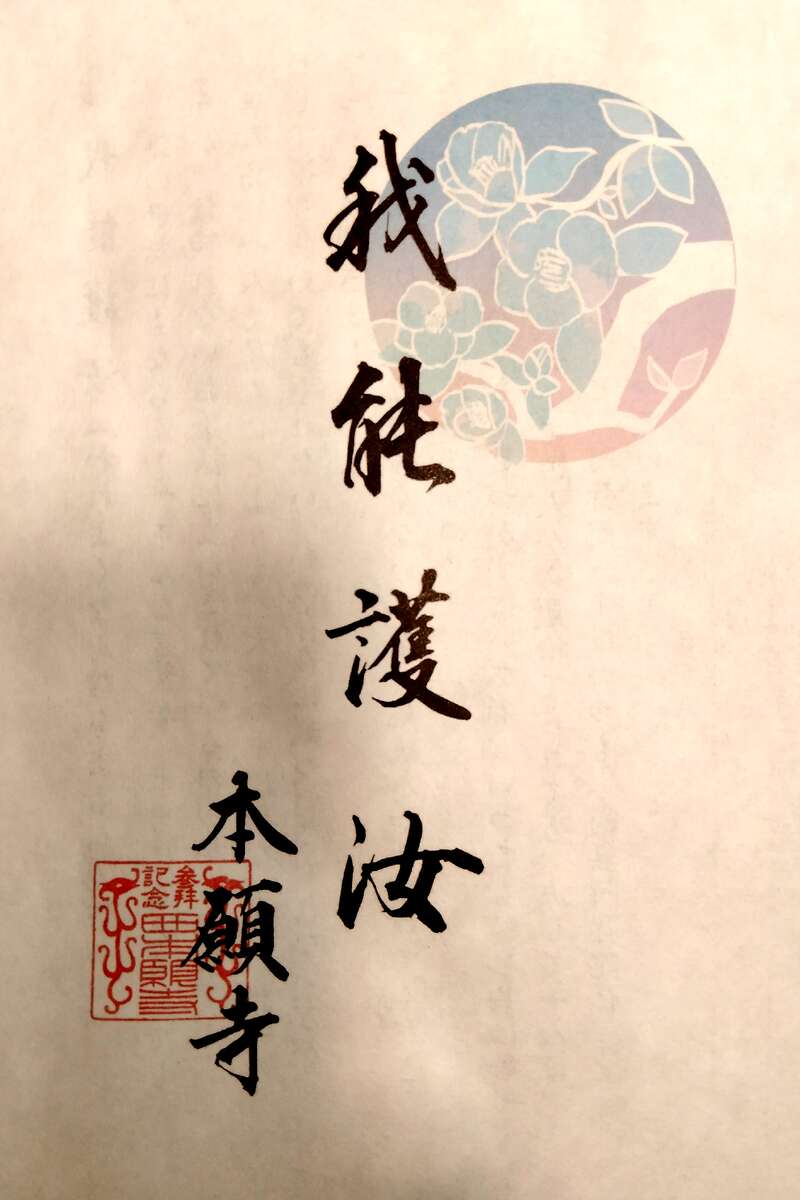 我能護汝
本願寺
参拝
記念
西本願寺